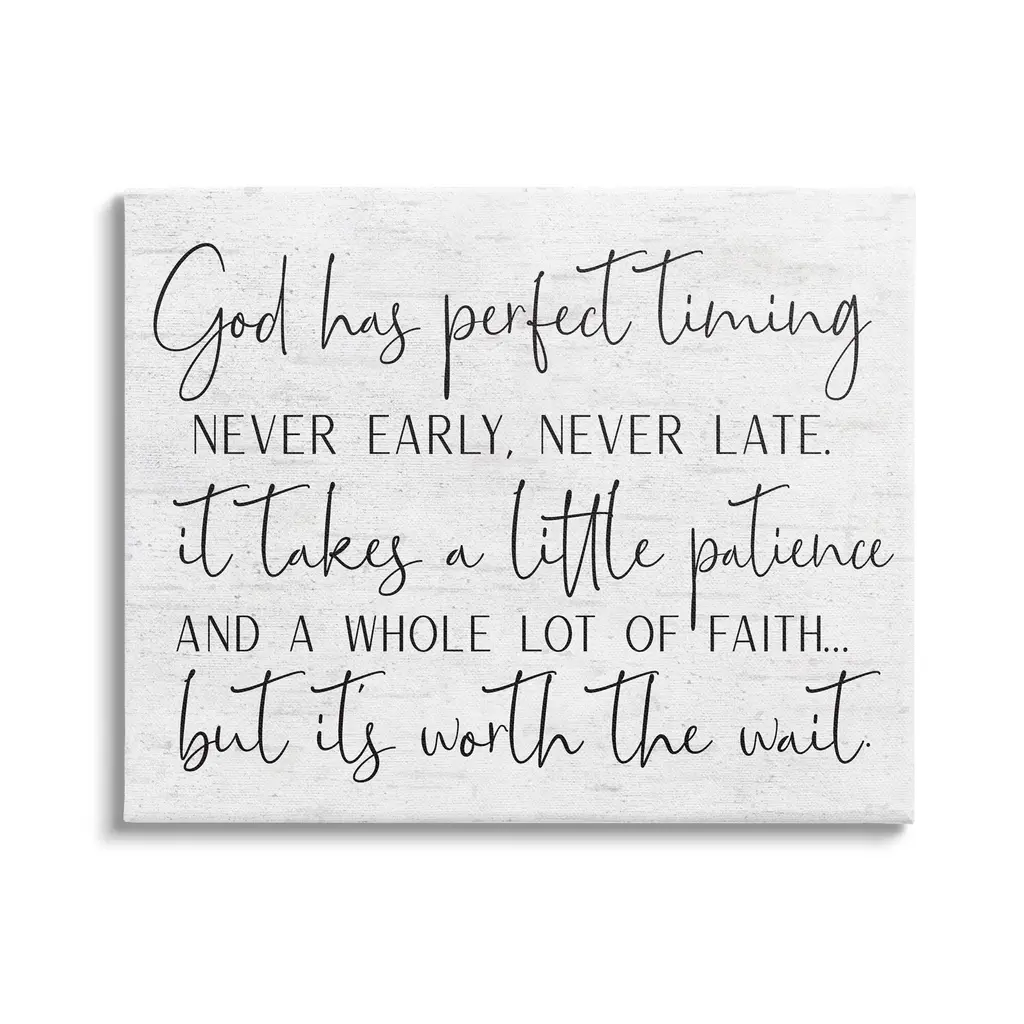 God has perfect timing
NEVER EARLY, NEVER LATE.
it takes a little patience
AND A WHOLE LOT OF FAITH...
but it's worth the wait.